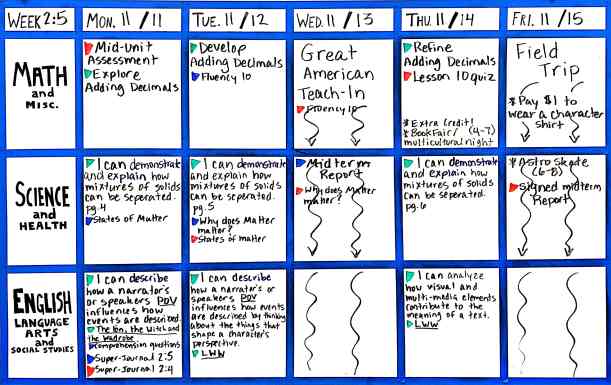 WEEK 2:5
MON. 11/11
TUE. 11/12
WED. 11/13
THU. 11/14
FRI. 11/15
MATH
and
MISC.
Mid-Unit
Assessment
Explore
Adding Decimals
Develop
Adding Decimals
Fluency 10
Great
American
Teach-In
Fluency 10
Refine
Adding Decimals
Lesson 10 quiz
*Extra Credit!
*Book Fair/ (4-7)
multicultural night
Field
Trip
*Pay $1 to
wear a character
shirt
SCIENCE
and
HEALTH
I can demonstrate
and explain how
mixtures of solids
can be seperated.
pg. 4
States of Matter
I can demonstrate
and explain how
mixtures of solids
can be seperated.
pg. 5
Why does Matter
matter?
States of matter
Midterm
Report
Why does Matter
matter?
I can demonstrate
and explain how
mixtures of solids
can be seperated.
pg. 6
*Astro Skate
(6-8)
Signed midterm
Report
ENGLISH
LANGUAGE
ARTS and
SOCIAL STUDIES
I can describe
how a narrator's
or speakers POV
influences how
events are described.
The lion, the Witch and
the Wadrobe
comprehension questions
Super-Journal 2:5
Super-Journal 2:4
I can describe
how a narrator's or
speakers POV
influences how events
are described by thinking
about the things that
shape a character's
perspective.
LWW
I can analyze
how visual and
multi-media elements
contribute to the
meaning of a text.
LWW